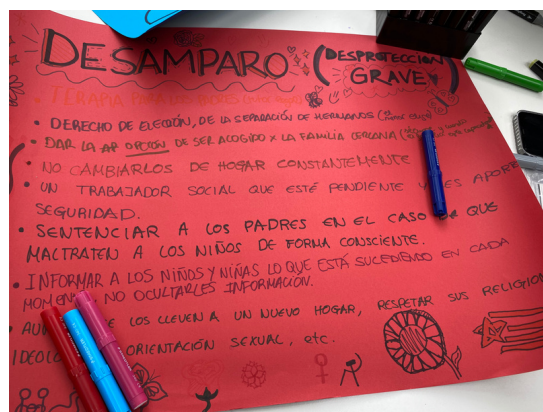 DESAMPARO (DESPROTECCIÓN GRAVE)
• TERAPIA PARA LOS PADRES
• DERECHO DE ELECCIÓN, DE LA SEPARACIÓN DE HERMANOS
• DAR LA OPCIÓN DE SER ACOGIDO X LA FAMILIA CERCANA
• NO CAMBIARLOS DE HOGAR CONSTANTEMENTE
• UN TRABAJADOR SOCIAL QUE ESTÉ PENDIENTE Y
SEGURIDAD.
• SENTENCIAR A LOS PADRES EN EL CASO QUE
MALTRATEN A LOS NIÑOS DE FORMA CONSCIENTE.
• INFORMAR A LOS NIÑOS Y NIÑAS LO QUE ESTÁ SUCEDIENDO EN CADA
NO OCULTARLES INFORMACIÓN.
• LOS LLEVEN A UN NUEVO HOGAR, RESPETAR SUS RELIGION
ORIENTACIÓN SEXUAL, etc.